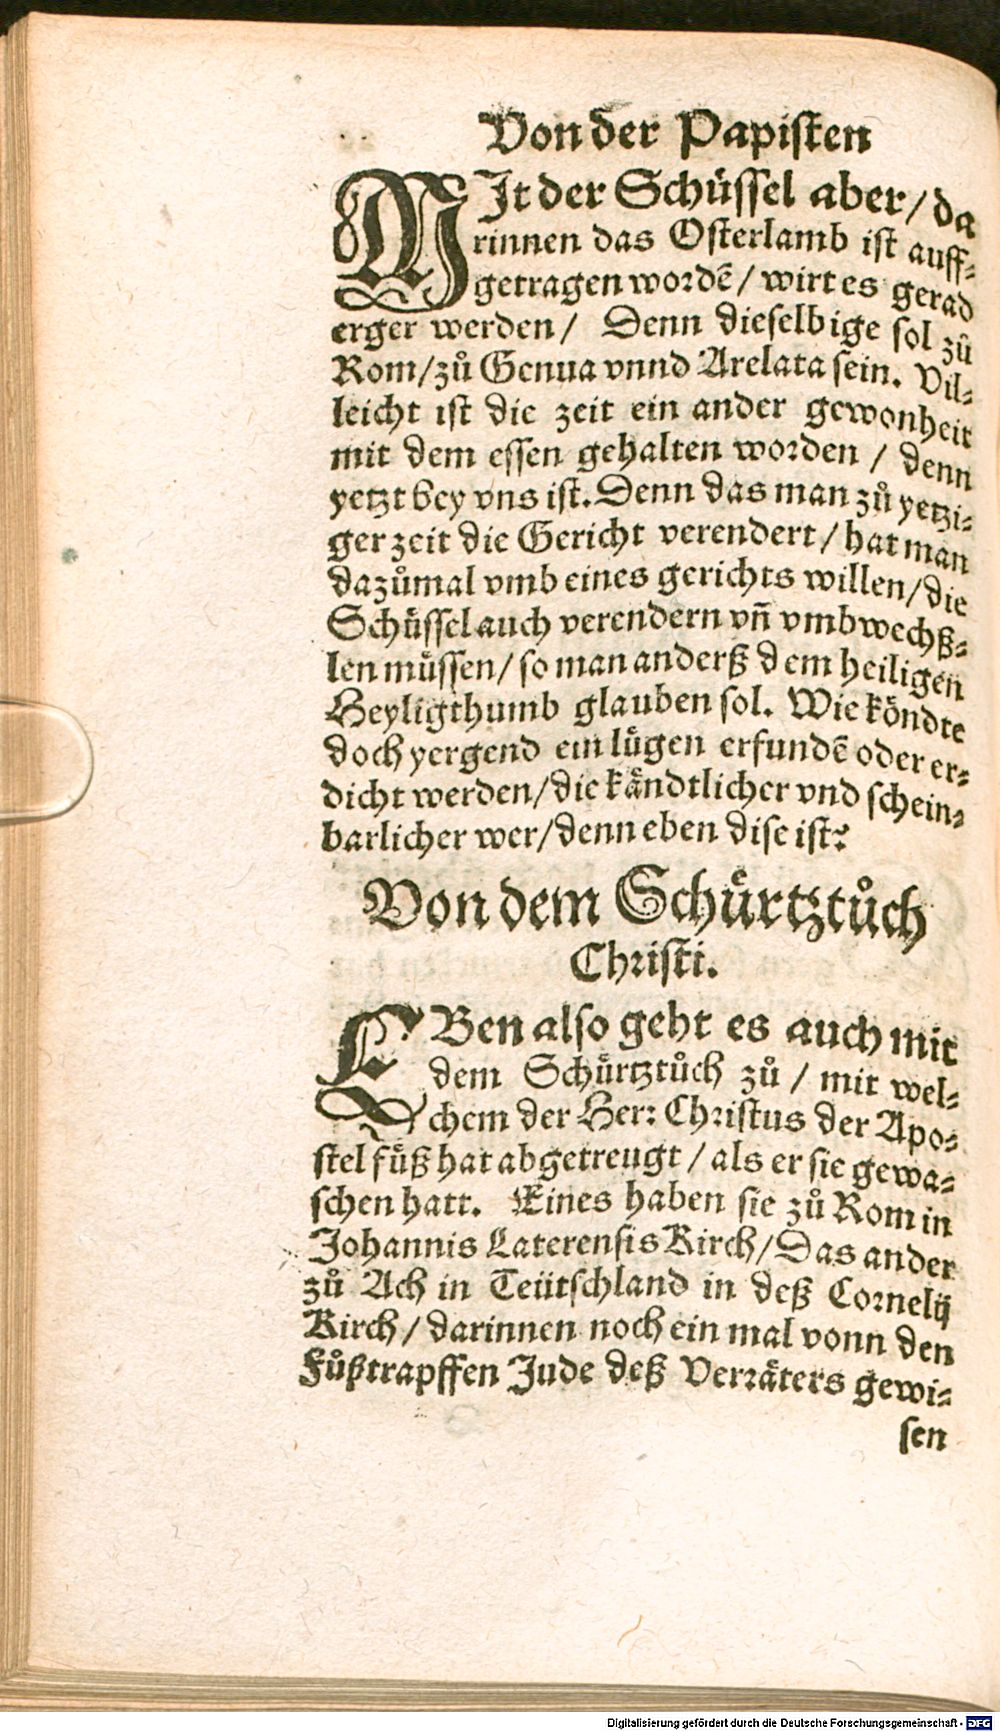 Von der Papisten
MIt der Schüssel aber/ da
rinnen das Osterlamb ist auff-
getragen wordē/ wirt es gerad
erger werden/ Denn dieselbige sol zů
Rom/ zů Genua vnnd Arelata sein. Vil-
leicht ist die zeit ein ander gewonheit
mit dem essen gehalten worden / denn
yetzt bey vns ist. Denn das man zů yetzi-
ger zeit die Gericht verendert/ hat man
dazůmal vmb eines gerichts willen/ die
Schüssel auch verendern vñ vmbwechß-
len müssen/ so man anderß dem heiligen
Heyligthumb glauben sol. Wie köndte
doch yergend ein lügen erfundē oder er-
dicht werden/ die kändtlicher vnd schein-
barlicher wer/ denn eben dise ist?
Von dem Schürtztůch
Christi.
EBen also geht es auch mit
dem Schürtztůch zů / mit wel-
chem der Herr Christus der Apo-
stel füß hat abgetreugt / als er sie gewa-
schen hatt. Eines haben sie zů Rom in
Johannis Laterensis Kirch/ Das ander
zů Ach in Teütschland in deß Cornelij
Kirch/ darinnen noch ein mal vonn den
Fůßtrapffen Jude deß Verräters gewi-
sen
Digitalisierung gefördert durch die Deutsche Forschungsgemeinschaft - DFG